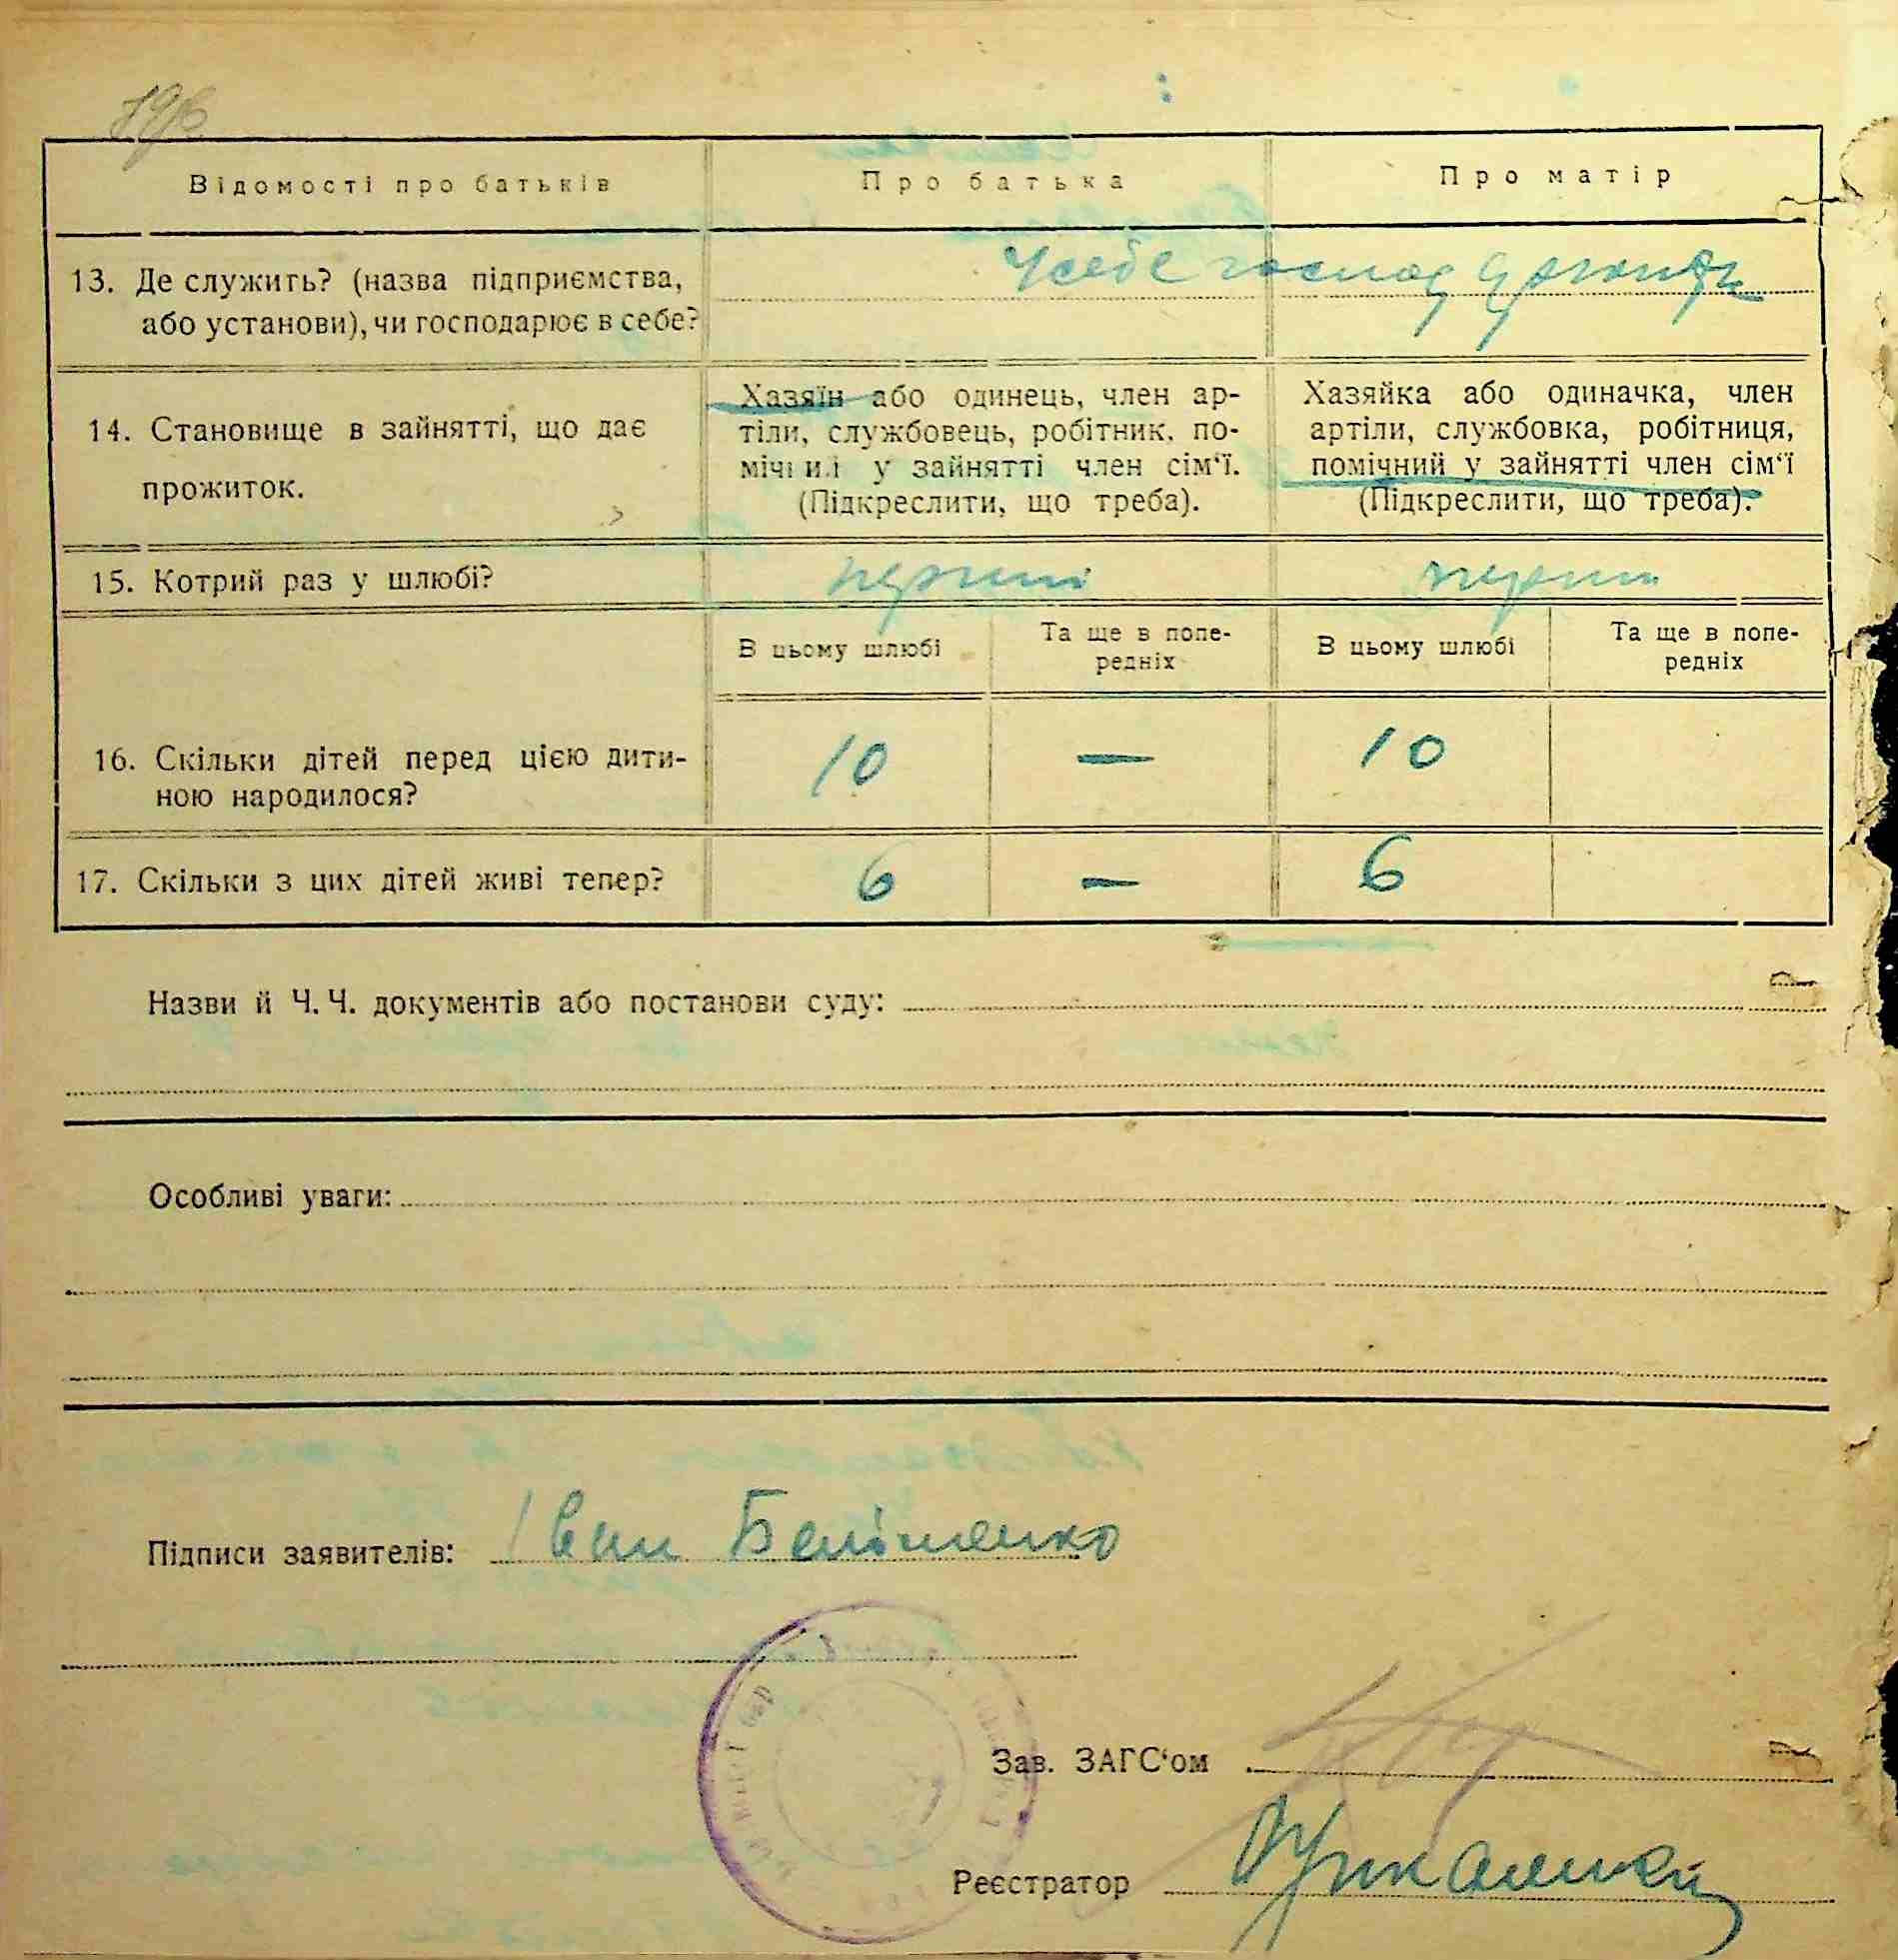 Відомості про батьків
Про батька
Про матір
13. Де служить? (назва підприємства,
або установи), чи господарює в себе?
14. Становище в зайнятті, що дає
прожиток.
Хазяїн або одинець, член ар-
тіли, службовець, робітник, по-
мічний у зайнятті член сім‘ї.
(Підкреслити, що треба).
Хазяйка або одиначка, член
артіли, службовка, робітниця,
помічний у зайнятті член сім‘ї
(Підкреслити, що треба).
15. Котрий раз у шлюбі?
В цьому шлюбі
Та ще в попе-
редніх
В цьому шлюбі
Та ще в попе-
редніх
16. Скільки дітей перед цією дити-
ною народилося?
10 — 10
17. Скільки з цих дітей живі тепер?
6 — 6
Назви й Ч. Ч. документів або постанови суду:
Особливі уваги:
Підписи заявителів: Іван
Зав. ЗАГС‘ом
Реєстратор